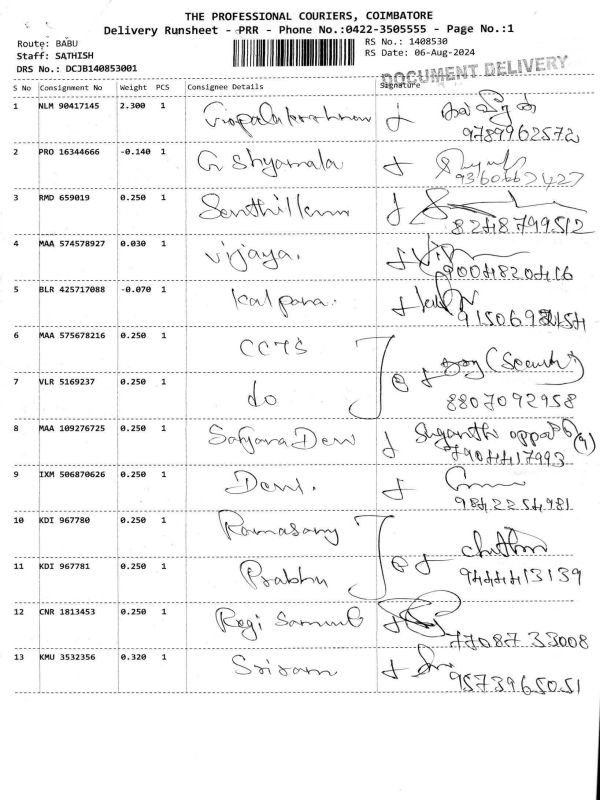 THE PROFESSIONAL COURIERS, COIMBATORE
Delivery Runsheet - PRR - Phone No.:0422-3505555 - Page No.:1
Route: BABU
RS No.: 1408530
Staff: SATHISH
RS Date: 06-Aug-2024
DRS No.: DCJB140853001
DOCUMENT DELIVERY
S No Consignment No Weight PCS Consignee Details Signature
1 NLM 90417145 2.300 1
9789962572
2 PRO 16344666 -0.140 1 G Shyamala
9360667427
3 RMD 659019 0.250 1 Senthilkum
8248799512
4 MAA 574578927 0.030 1 Vijaya.
9004820416
5 BLR 425717088 -0.070 1 Kalpana.
6 MAA 575678216 0.250 1 CCTS
(Security)
7 VLR 5169237 0.250 1 do
8807092958
8 MAA 109276725 0.250 1 Sathyana Devi Suganthi
7904417993
9 IXM 506870626 0.250 1 Devi.
9842254981
10 KDI 967780 0.250 1 Ramasamy
11 KDI 967781 0.250 1 Prabhu
9444413139
12 CNR 1813453 0.250 1 Regi Samuel
7708733008
13 KMU 3532356 0.320 1 Sriram
9573965051